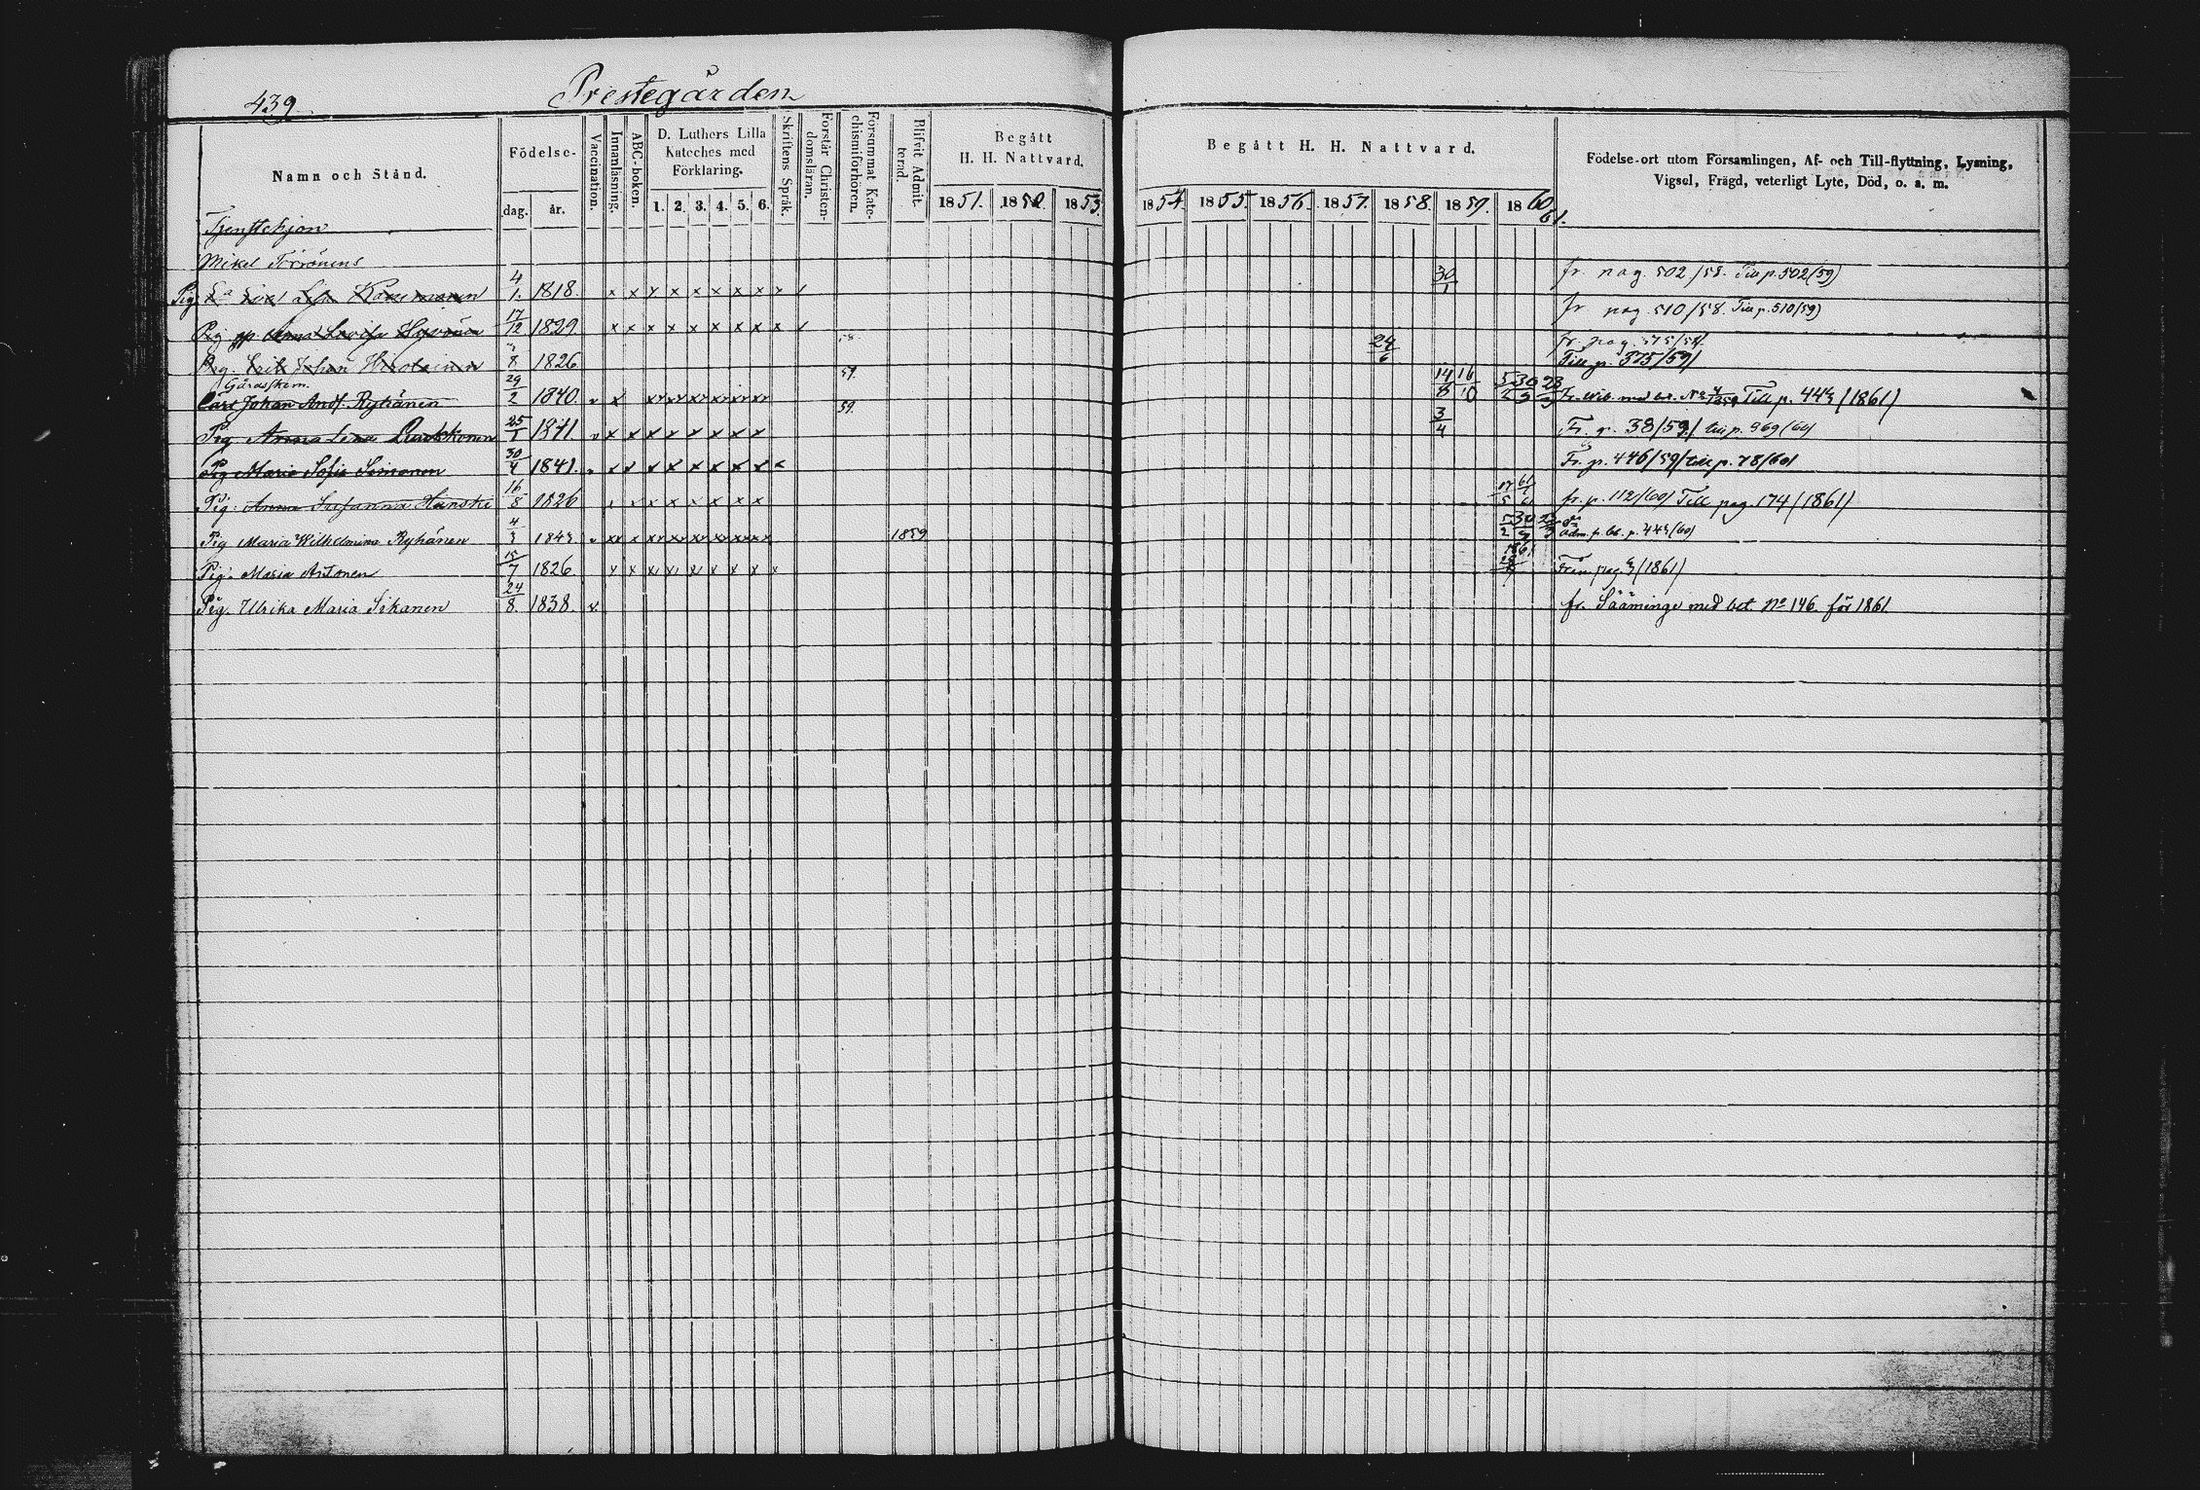 439
Prestegården
Namn och Stånd.
Födelse-
dag. år.
Vaccination.
Innanläsning.
ABC-boken.
D. Luthers Lilla
Kateches med
Förklaring.
1. 2. 3. 4. 5. 6.
Skriftens Språk.
Förstår Christen-
domsläran.
Försummat Kate-
chismiförhören.
Blifvit Admit-
terad.
Begått
H. H. Nattvard.
1851. 1852. 1853.
Begått H. H. Nattvard.
1854. 1855. 1856. 1857. 1858. 1859. 1860
61.
Födelse-ort utom Församlingen, Af- och Till-flyttning, Lysning,
Vigsel, Frägd, veterligt Lyte, Död, o. s. m.
Tjenstehjon
Mikel Törrönens
Pig. 4/1. 1818. x x x x x x x x x / 30/1 fr. pag. 502/58. Till p. 502/59)
Pig Lovisa 17/12 1829 x x x x x x x x x / fr pag. 510/58. Till p. 510/59)
Erik Johan 8 1826 58 24/6 fr. pag. 575/58/
Till p. 575/59/
Gårdskarn.
Carl Johan And. Ryhänen 29/2 1840. v x 59. 14/8 16/10 5/2 30/9 23/3 Till p. 443/(1861)
Pig Anna Lena 25/1 1841 v x x x x x x x x 59. 3/4 Fr. p. 38/59/ till p. 969/60)
Pig Maria Sofia Simonen 30/4 1841. v x x x x x x x x x Fr. p. 446/59/ till p. 78/60/
Pig. Anna Susanna Hanski 16/8 1826 x x x x x x x x 17/5 fr. p. 112/(60) Till pag. 174/(1861)
Pig Maria Wilhelmina Ryhänen 4/3 1843. v 1859 5/2 30/9 23/3 Adm. p. 443/(60)
Pig. Maria Antonen 15/7 1826 x x x x x x x x x 1861 Från pag. (1861)
Pig. Ulrika Maria Sikanen 24/8. 1838. v. fr. Sääminge med bet. No 146. för 1861.